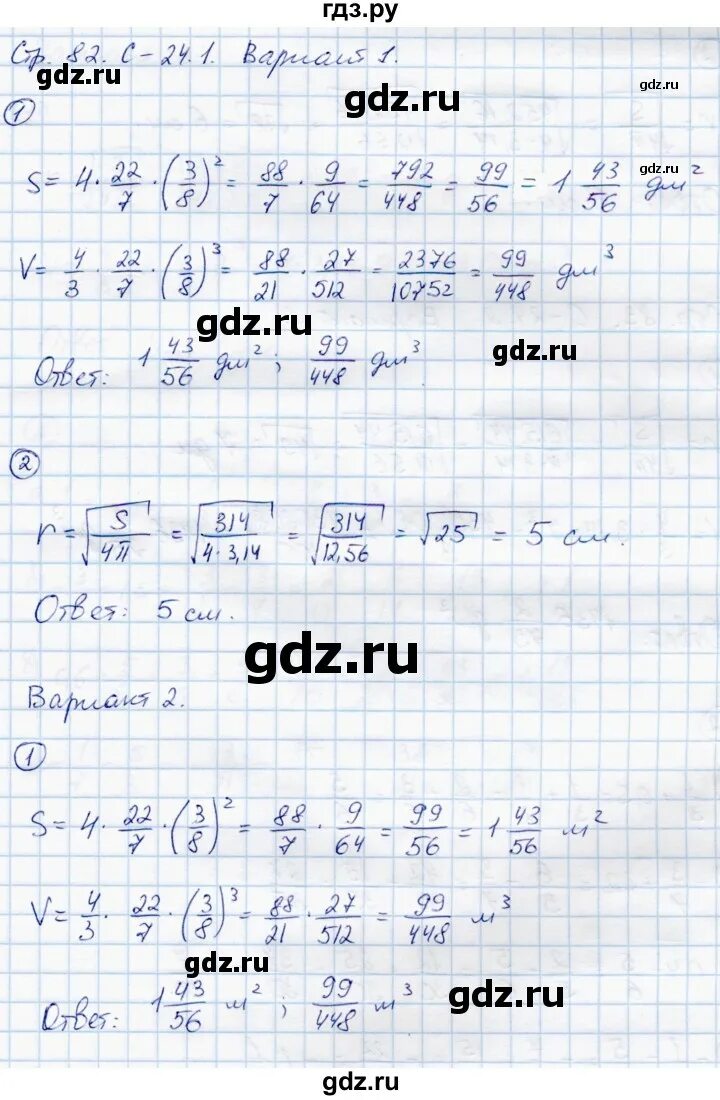 гдз.ру
Стр. 82. С-24.1. Вариант 1.
gdz.ru gdz.ru gdz.ru
1
S = 4 · 22/7 · (3/8)² = 88/7 · 9/64 = 792/448 = 99/56 = 1 43/56 дм²
gdz.ru
V = 4/3 · 22/7 · (3/8)³ = 88/21 · 27/512 = 2376/10752 = 99/448 дм³
gdz.ru gdz.ru
Ответ: 1 43/56 дм²; 99/448 дм³.
2
r = √(S/4π) = √(314/4·3,14) = √(314/12,56) = √25 = 5 см.
Ответ: 5 см.
gdz.ru
Вариант 2.
1
S = 4 · 22/7 · (3/8)² = 88/7 · 9/64 = 99/56 = 1 43/56 м²
V = 4/3 · 22/7 · (3/8)³ = 88/21 · 27/512 = 99/448 м³
gdz.ru gdz.ru
Ответ: 1 43/56 м²; 99/448 м³
gdz.ru